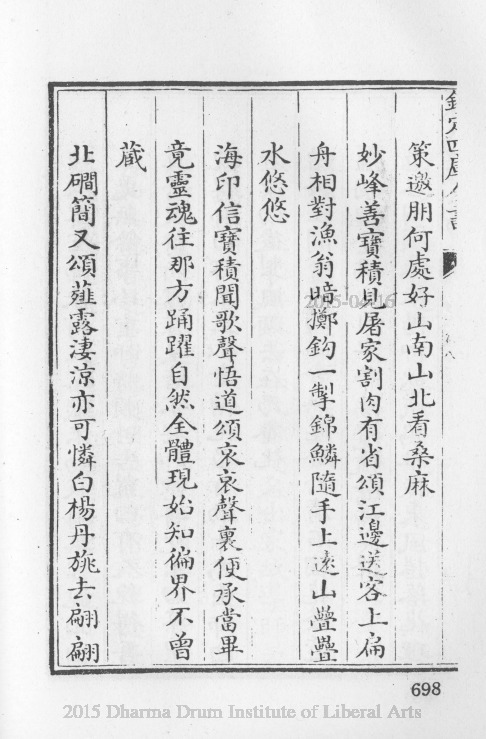 欽定四庫全書
策邀朋何處好山南山北看桑麻
妙峰善寶積見屠家割肉有省頌江邊送客上扁
舟相對漁翁暗擲鈎一掣錦鱗隨手上遠山疊疊
水悠悠
海印信寶積聞歌聲悟道頌哀哀聲裏便承當畢
竟靈魂往那方踊躍自然全體現始知徧界不曾
藏
北磵簡又頌薤露淒涼亦可憐白楊丹旐去翩翩
2015-04-16
698
2015 Dharma Drum Institute of Liberal Arts